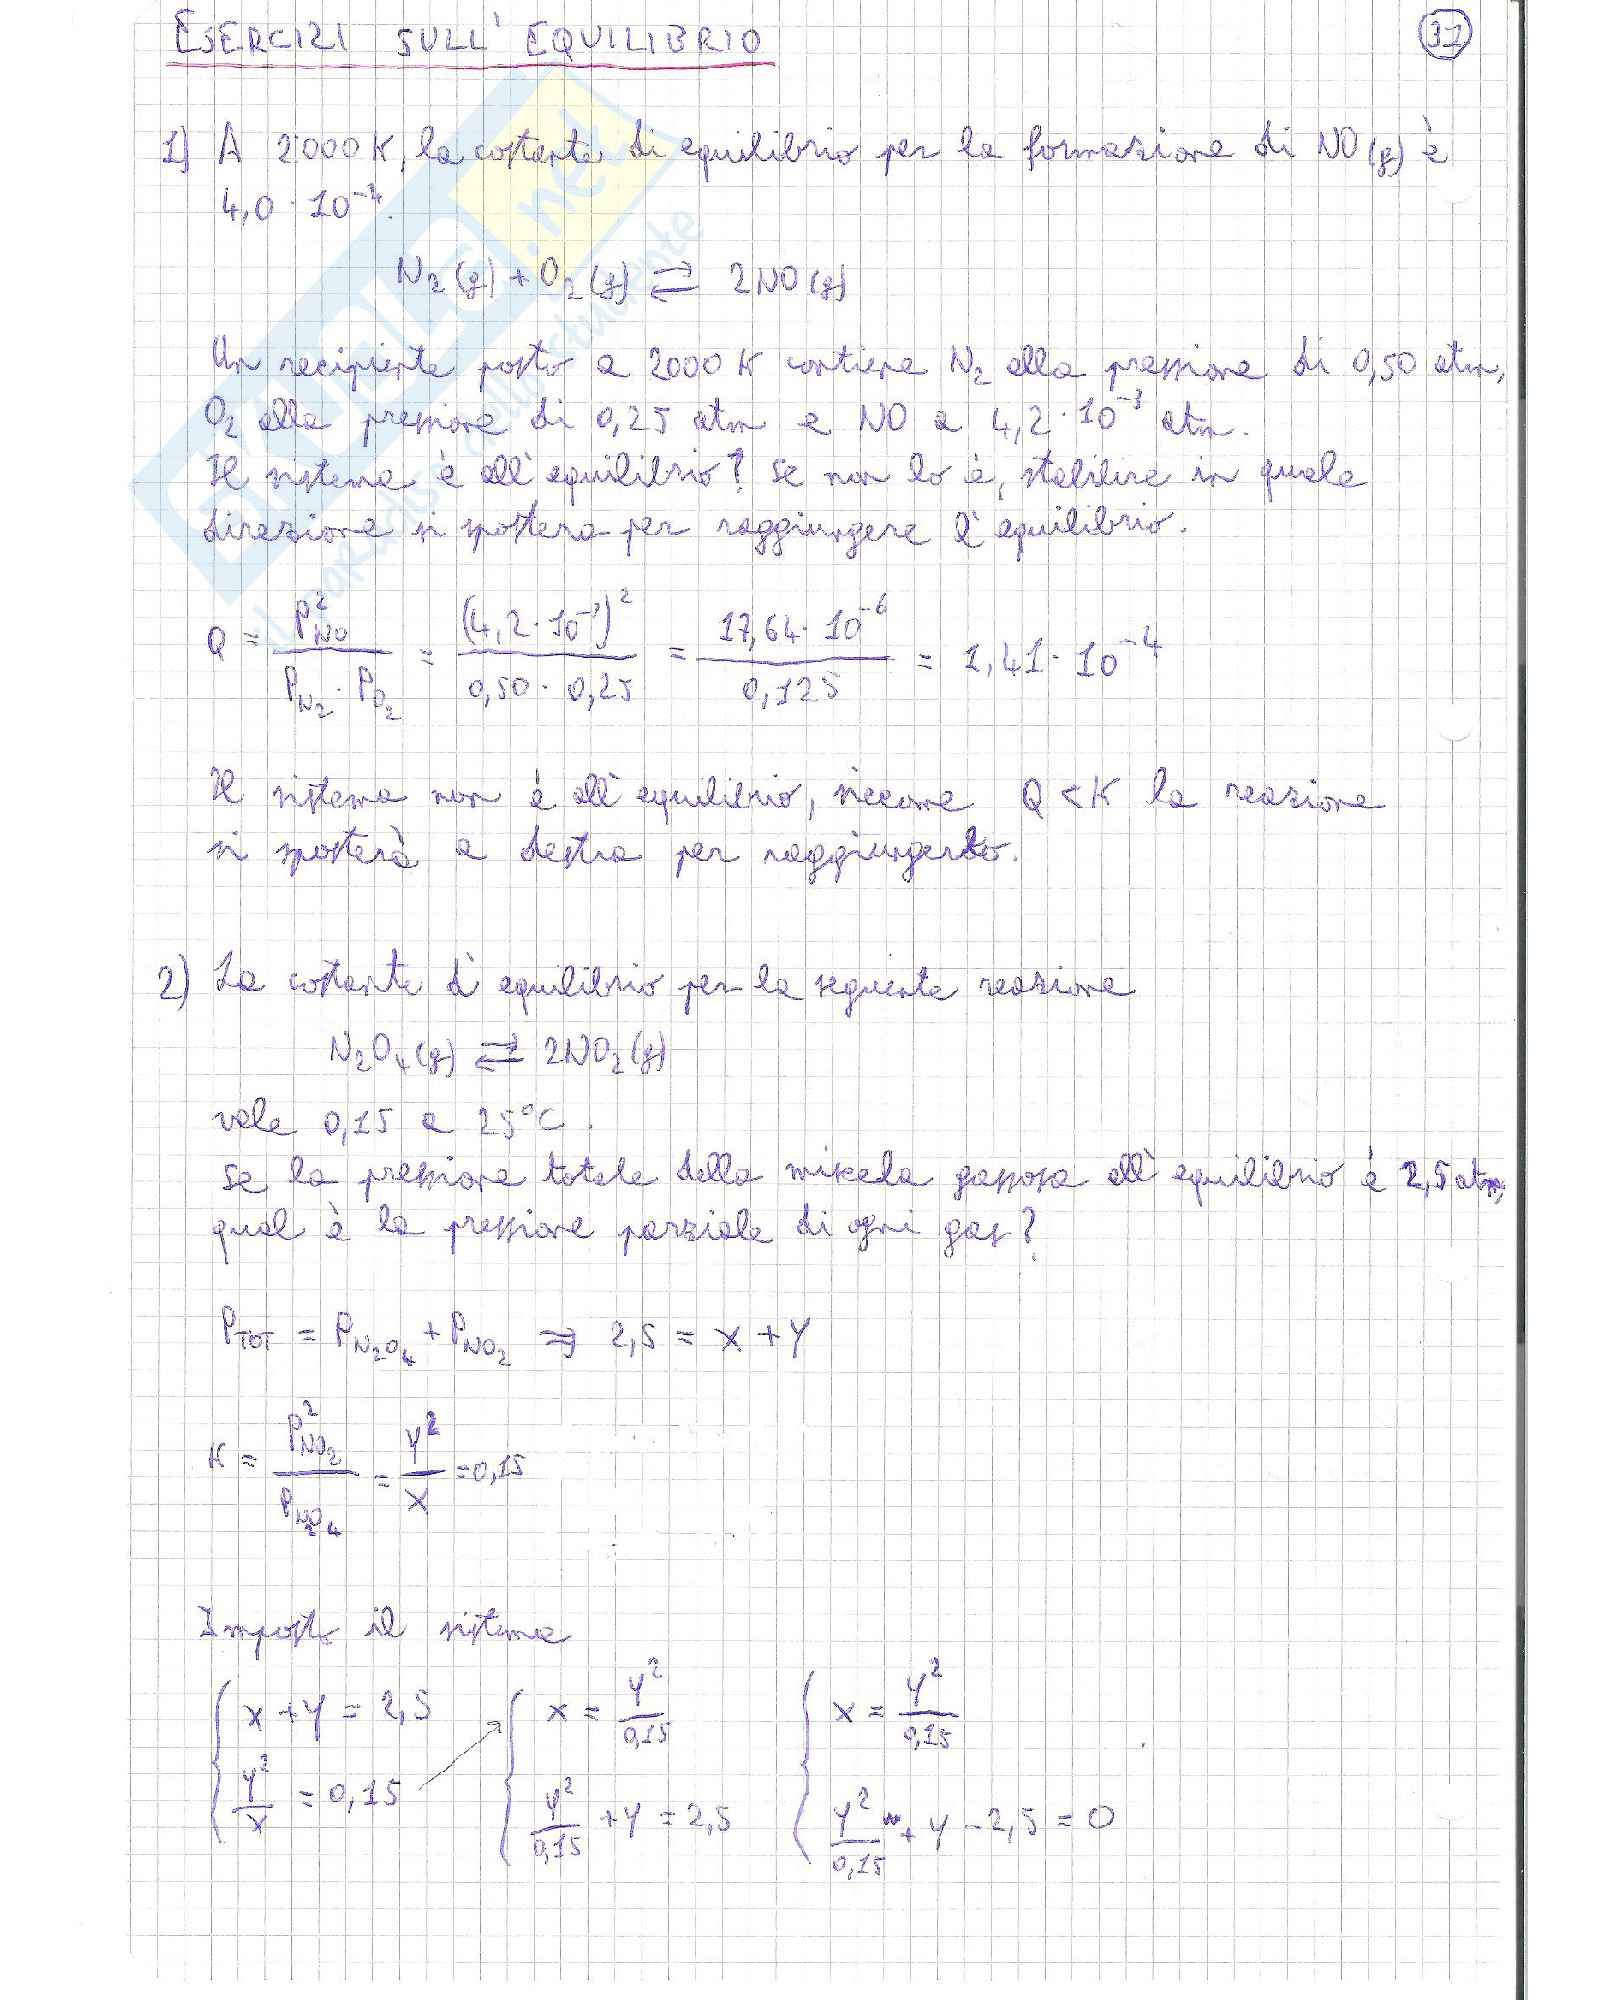 ESERCIZI SULL'EQUILIBRIO
31
1) A 2000 K, la costante di equilibrio per la formazione di NO(g) è
4,0 · 10⁻⁴.
N₂(g) + O₂(g) ⇄ 2NO(g)
Un recipiente posto a 2000 K contiene N₂ alla pressione di 0,50 atm,
O₂ alla pressione di 0,25 atm e NO a 4,2 · 10⁻³ atm.
Il sistema è all'equilibrio? Se non lo è, stabilire in quale
direzione si sposterà per raggiungere l'equilibrio.
Q = P²NO / (PN₂ · PO₂) = (4,2 · 10⁻³)² / (0,50 · 0,25) = 17,64 · 10⁻⁶ / 0,125 = 1,41 · 10⁻⁴
Il sistema non è all'equilibrio, siccome Q < K la reazione
si sposterà a destra per raggiungerlo.
2) La costante di equilibrio per la seguente reazione
N₂O₄(g) ⇄ 2NO₂(g)
vale 0,15 a 25°C.
Se la pressione totale della miscela gassosa all'equilibrio è 2,5 atm,
qual è la pressione parziale di ogni gas?
PTOT = PN₂O₄ + PNO₂ ⇒ 2,5 = x + y
K = P²NO₂ / PN₂O₄ = y² / x = 0,15
Imposto il sistema
{ x + y = 2,5 { x = y² / 0,15 { x = y² / 0,15
y² / x = 0,15 y² / 0,15 + y = 2,5 y² / 0,15 + y - 2,5 = 0